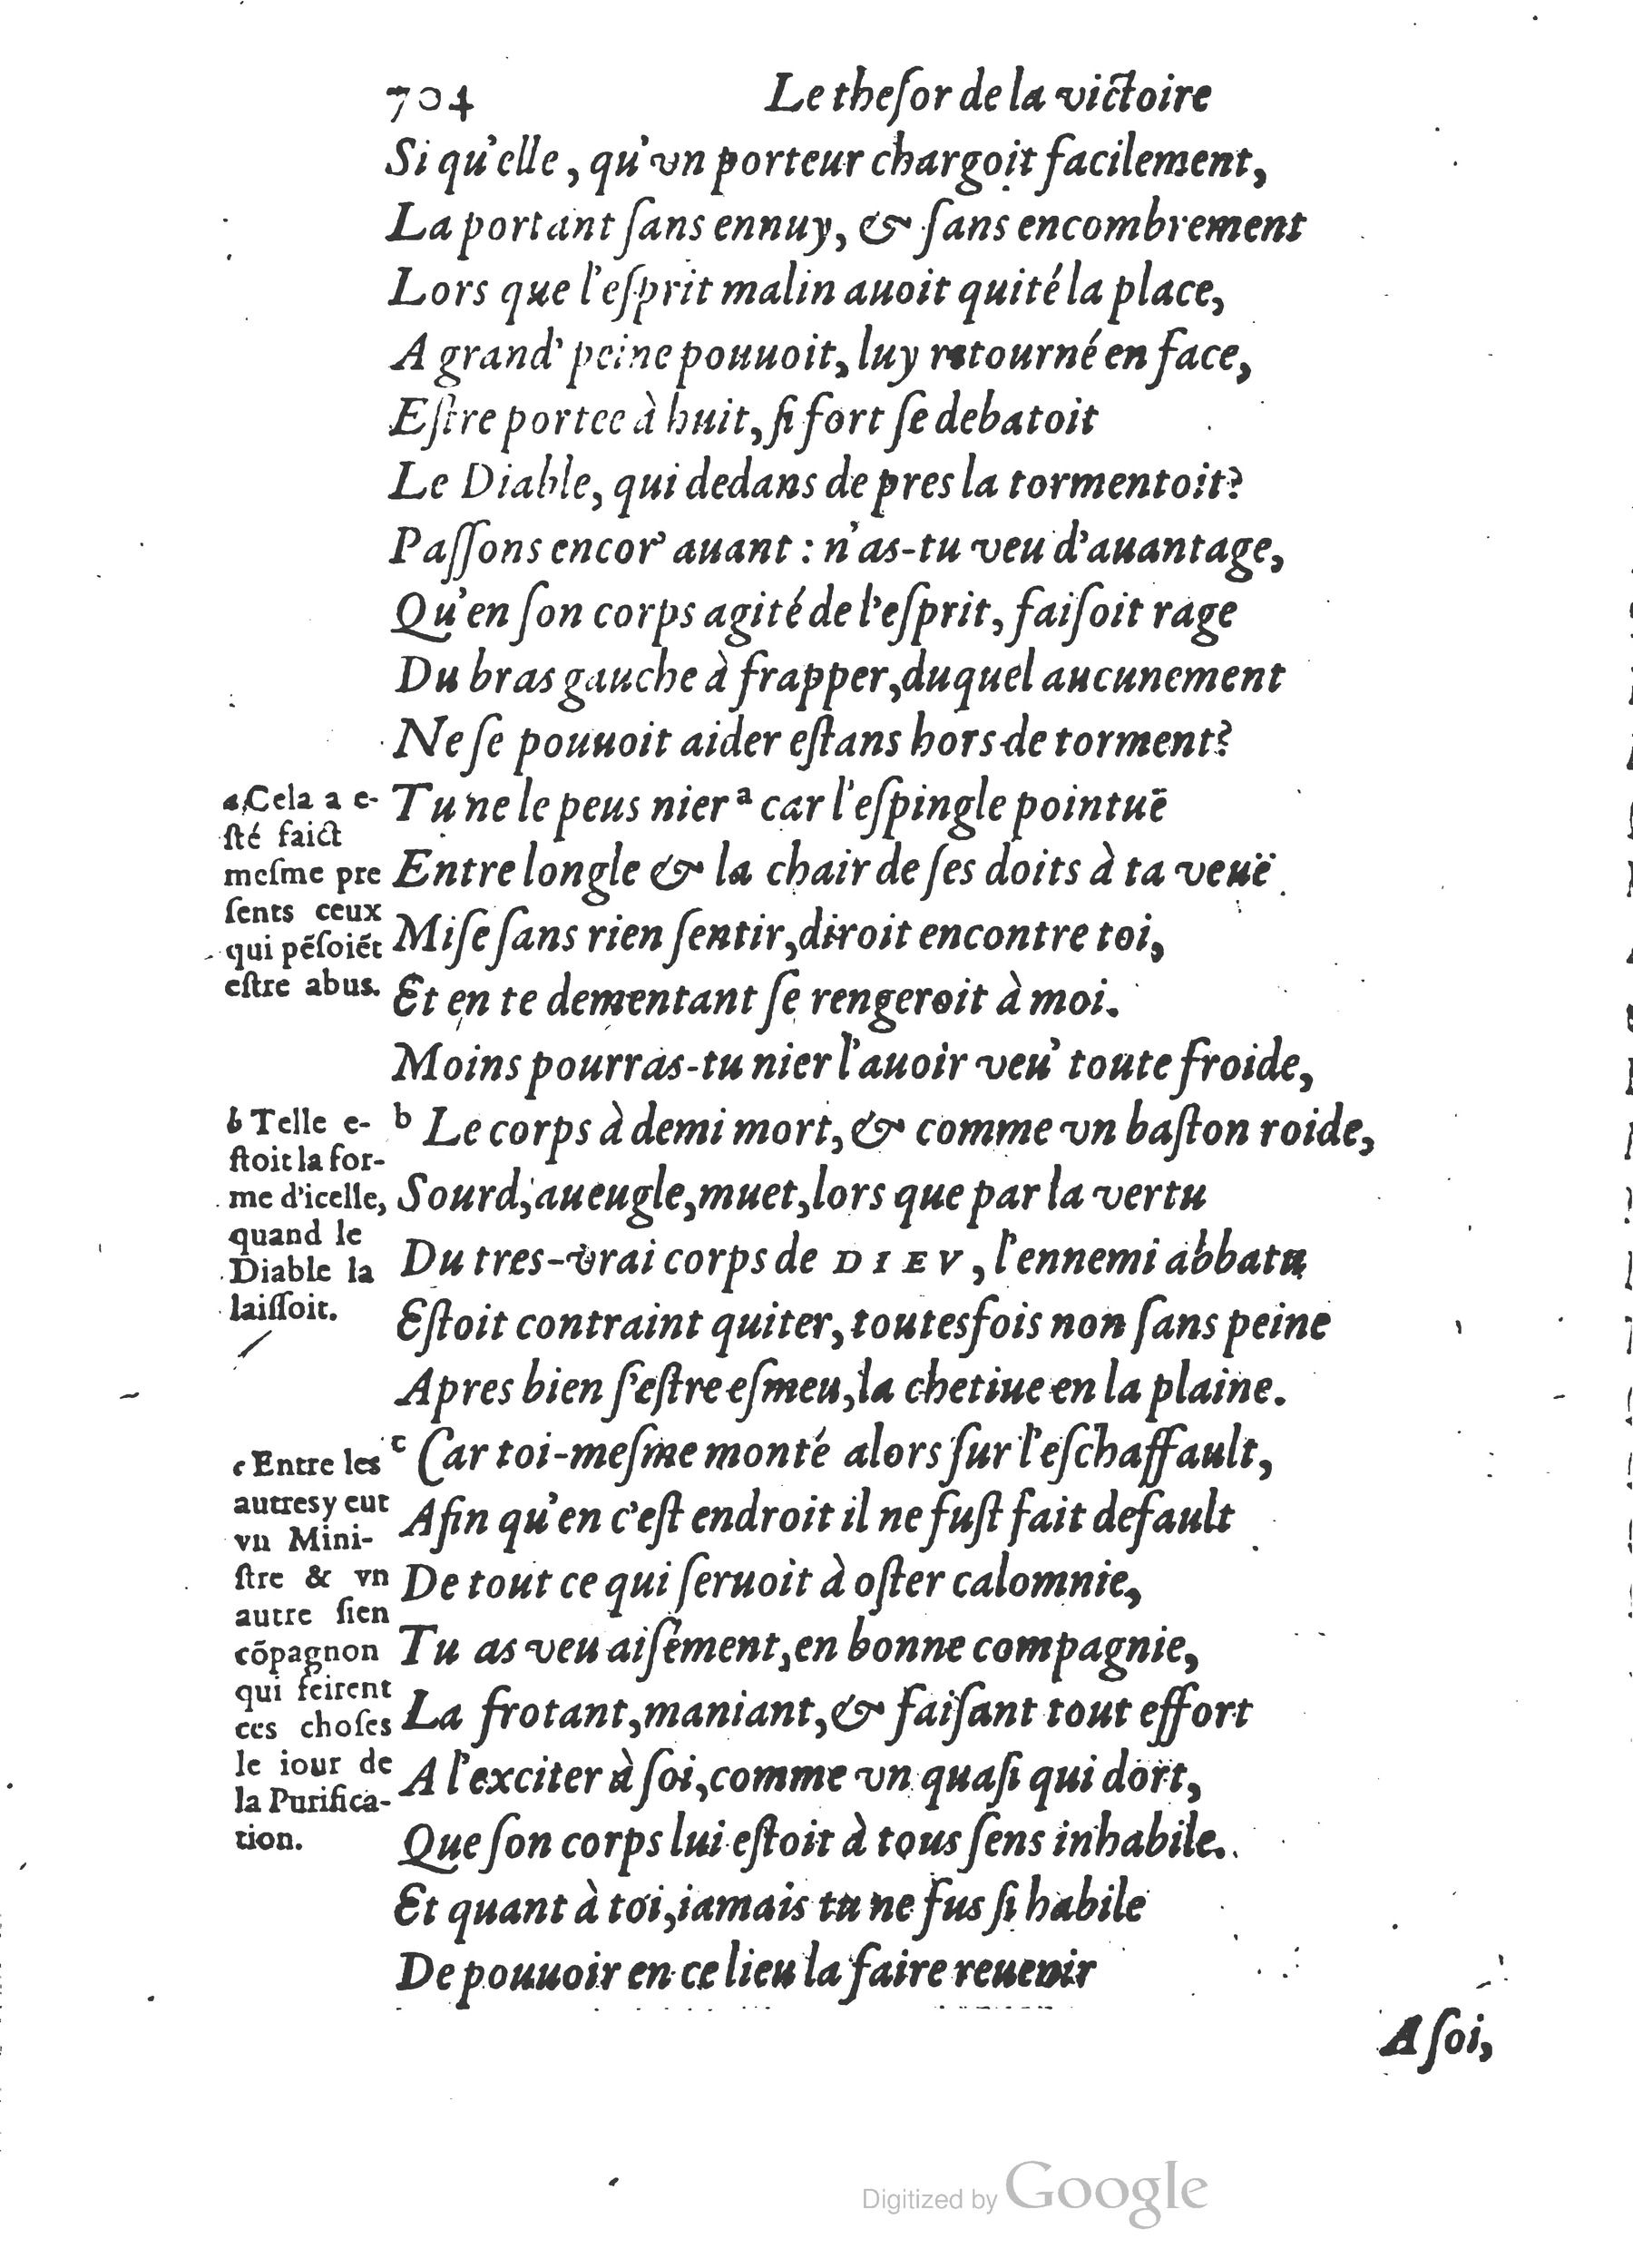 704 Le theſor de la victoire
Si qu'elle, qu'vn porteur chargoit facilement,
La portant ſans ennuy, & ſans encombrement
Lors que l'eſprit malin auoit quité la place,
A grand' peine pouuoit, luy retourné en face,
Eſtre portee à huit, ſi fort ſe debatoit
Le Diable, qui dedans de pres la tormentoit?
Paſſons encor' auant : n'as-tu veu d'auantage,
Qu'en ſon corps agité de l'eſprit, faiſoit rage
Du bras gauche à frapper, duquel aucunement
Ne ſe pouuoit aider eſtans hors de torment?
Tu ne le peus nier ª car l'eſpingle pointuë
Entre longle & la chair de ſes doits à ta veuë
Miſe ſans rien ſentir, diroit encontre toi,
Et en te dementant ſe rengeroit à moi.
Moins pourras-tu nier l'auoir veu' toute froide,
b Le corps à demi mort, & comme vn baſton roide,
Sourd, aueugle, muet, lors que par la vertu
Du tres-vrai corps de DIEV, l'ennemi abbatu
Eſtoit contraint quiter, toutesfois non ſans peine
Apres bien ſ'eſtre eſmeu, la chetiue en la plaine.
c Car toi-meſme monté alors ſur l'eſchaffault,
Afin qu'en c'eſt endroit il ne fuſt fait default
De tout ce qui ſeruoit à oſter calomnie,
Tu as veu aiſément, en bonne compagnie,
La frotant, maniant, & faiſant tout effort
A l'exciter à ſoi, comme vn quaſi qui dort,
Que ſon corps lui eſtoit à tous ſens inhabile.
Et quant à toi, iamais tu ne fus ſi habile
De pouuoir en ce lieu la faire reuenir
A ſoi,
a Cela a e-
ſté faict
meſme pre
ſents ceux
qui pēſoiēt
eſtre abus.
b Telle e-
ſtoit la for-
me d'icelle,
quand le
Diable la
laiſſoit.
c Entre les
autres y eut
vn Mini-
ſtre & vn
autre ſien
cōpagnon
qui feirent
ces choſes
le iour de
la Purifica-
tion.
Digitized by Google